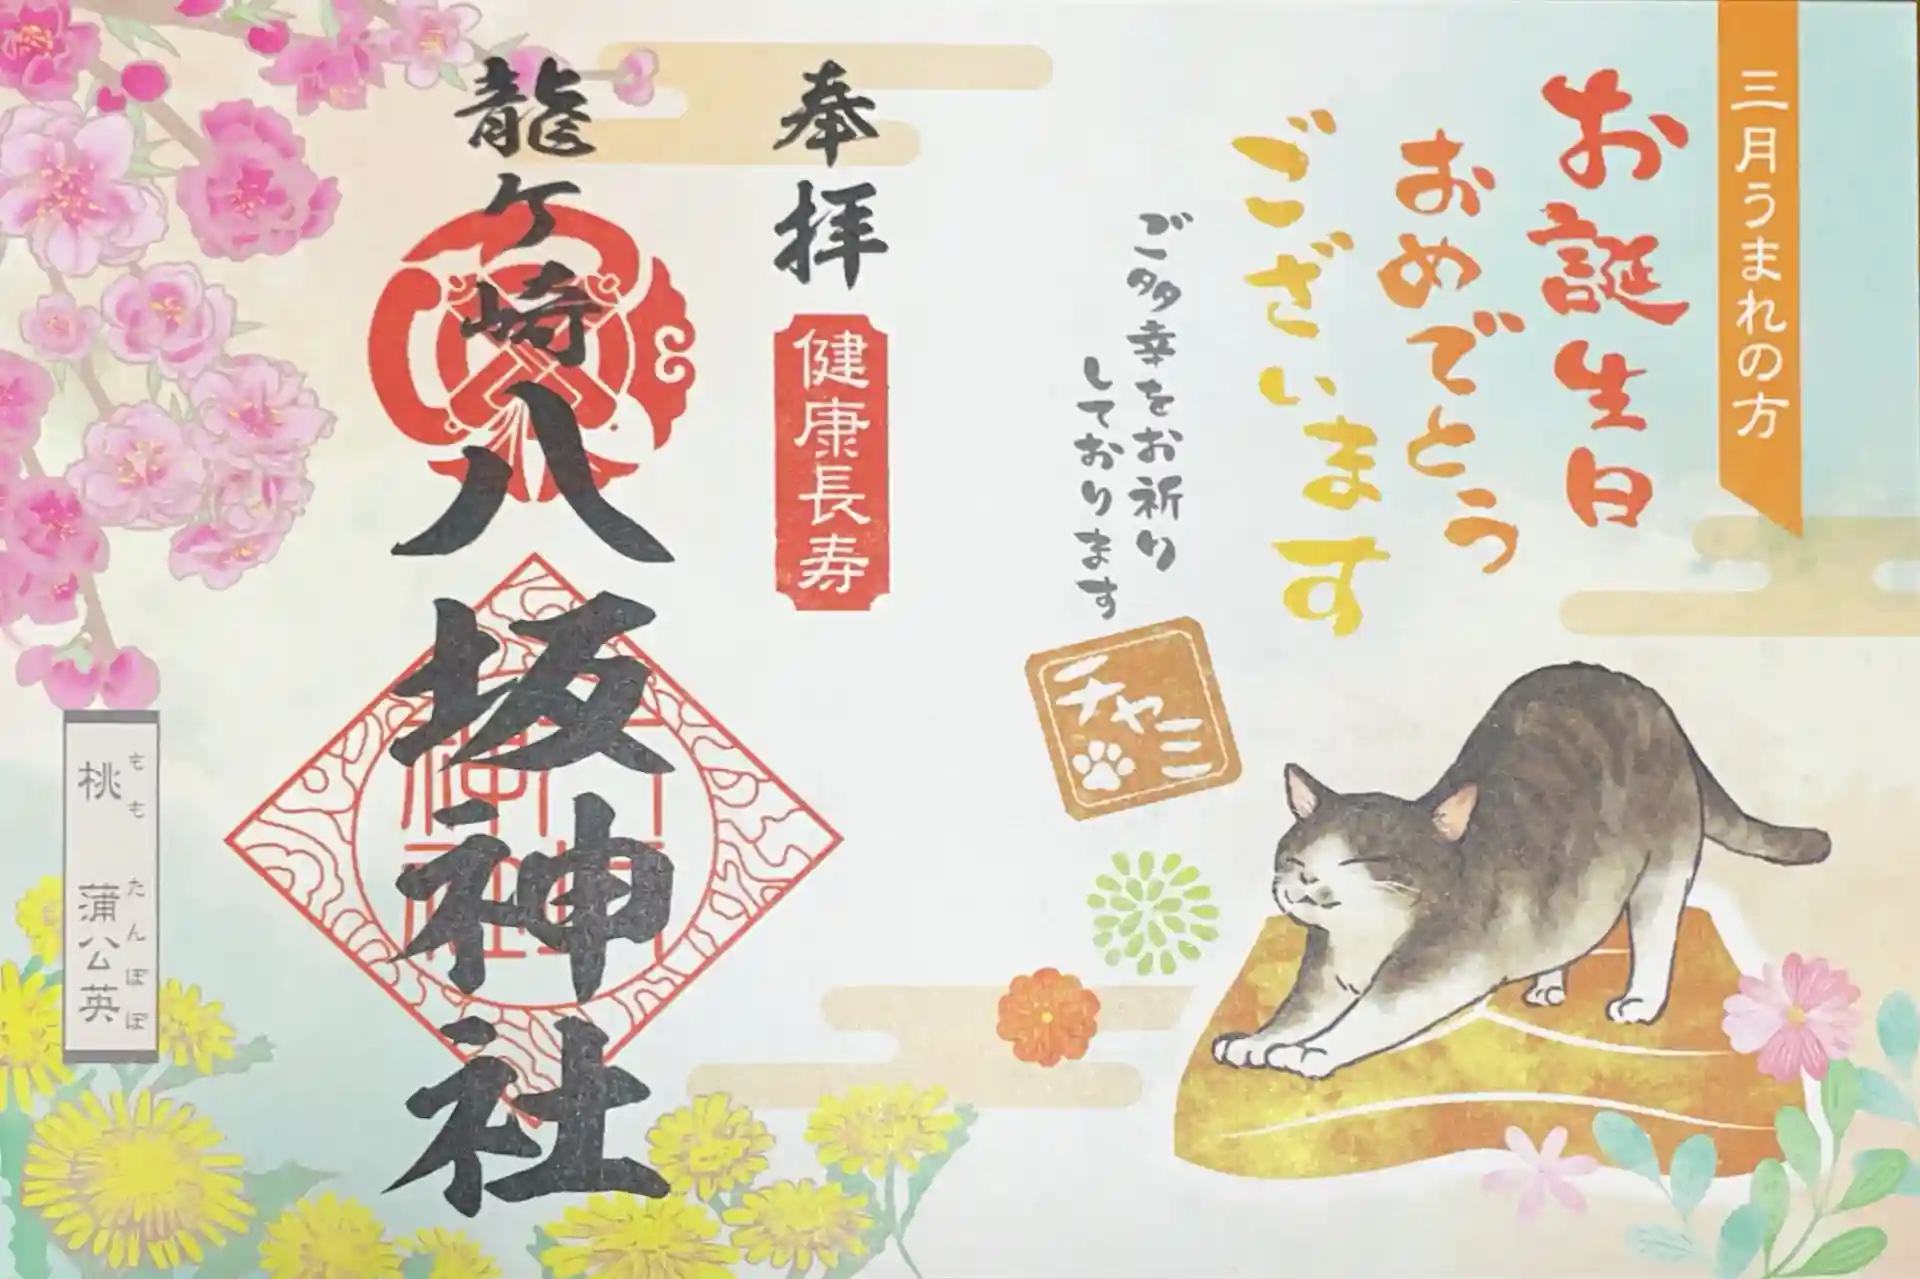 三月うまれの方
お誕生日
おめでとう
ございます
ご多幸をお祈り
しております
チャミ
奉拝
健康長寿
龍ケ崎八坂神社
もも たんぽぽ
桃 蒲公英